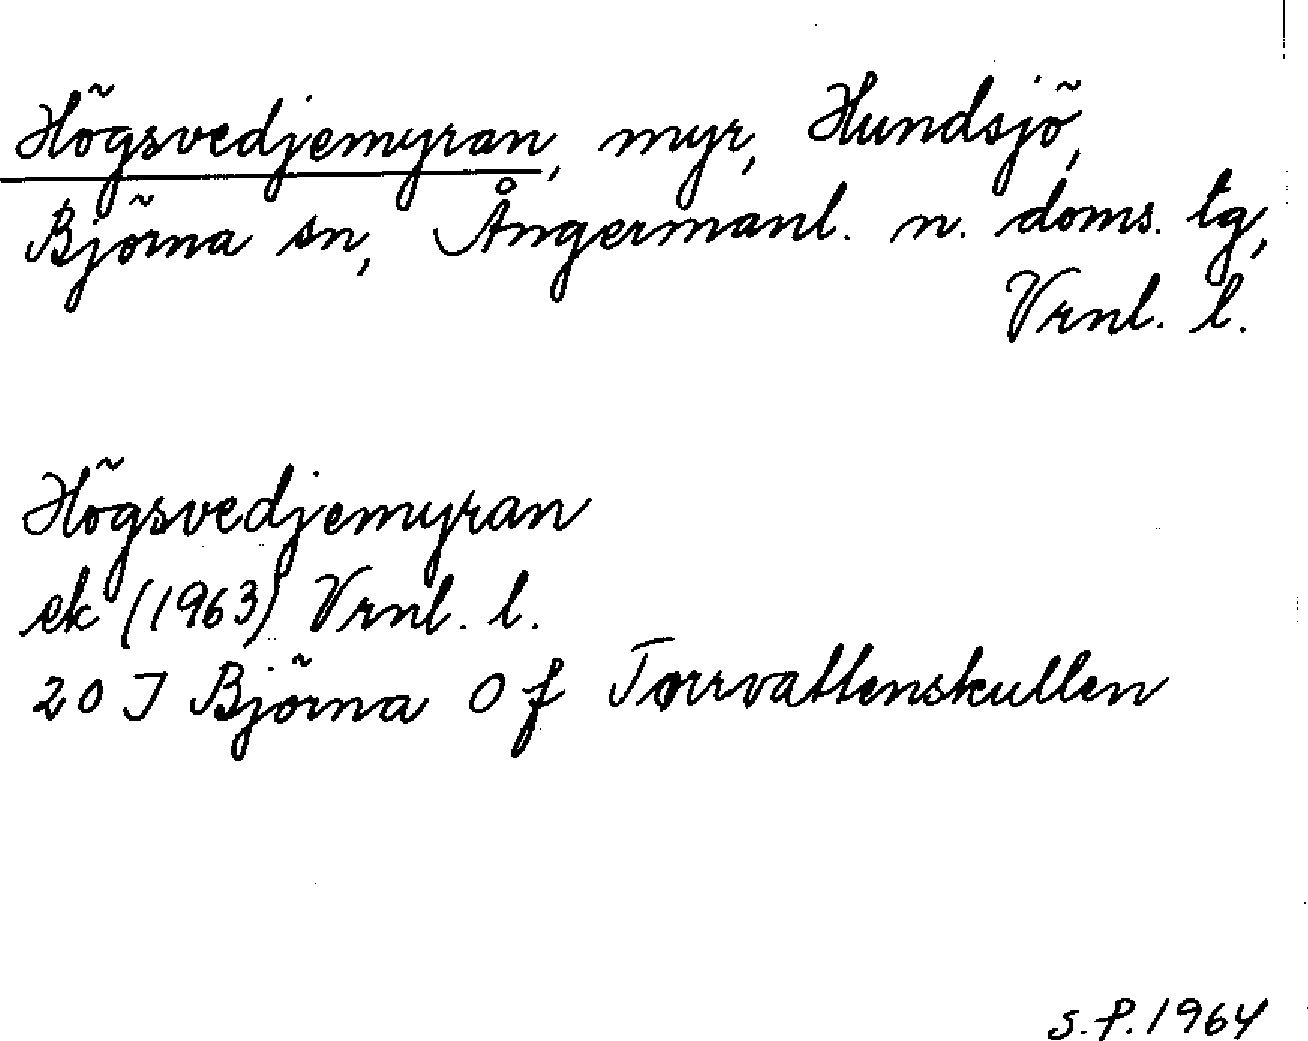 Högsvedjemyran, myr, Hundsjö,
Björna sn, Ångermanl. n. doms. tg,
Vrnl. l.
Högsvedjemyran
ek (1963) Vrnl. l.
20 J Björna 0 f Torrvattenskullen
S.P. 1964